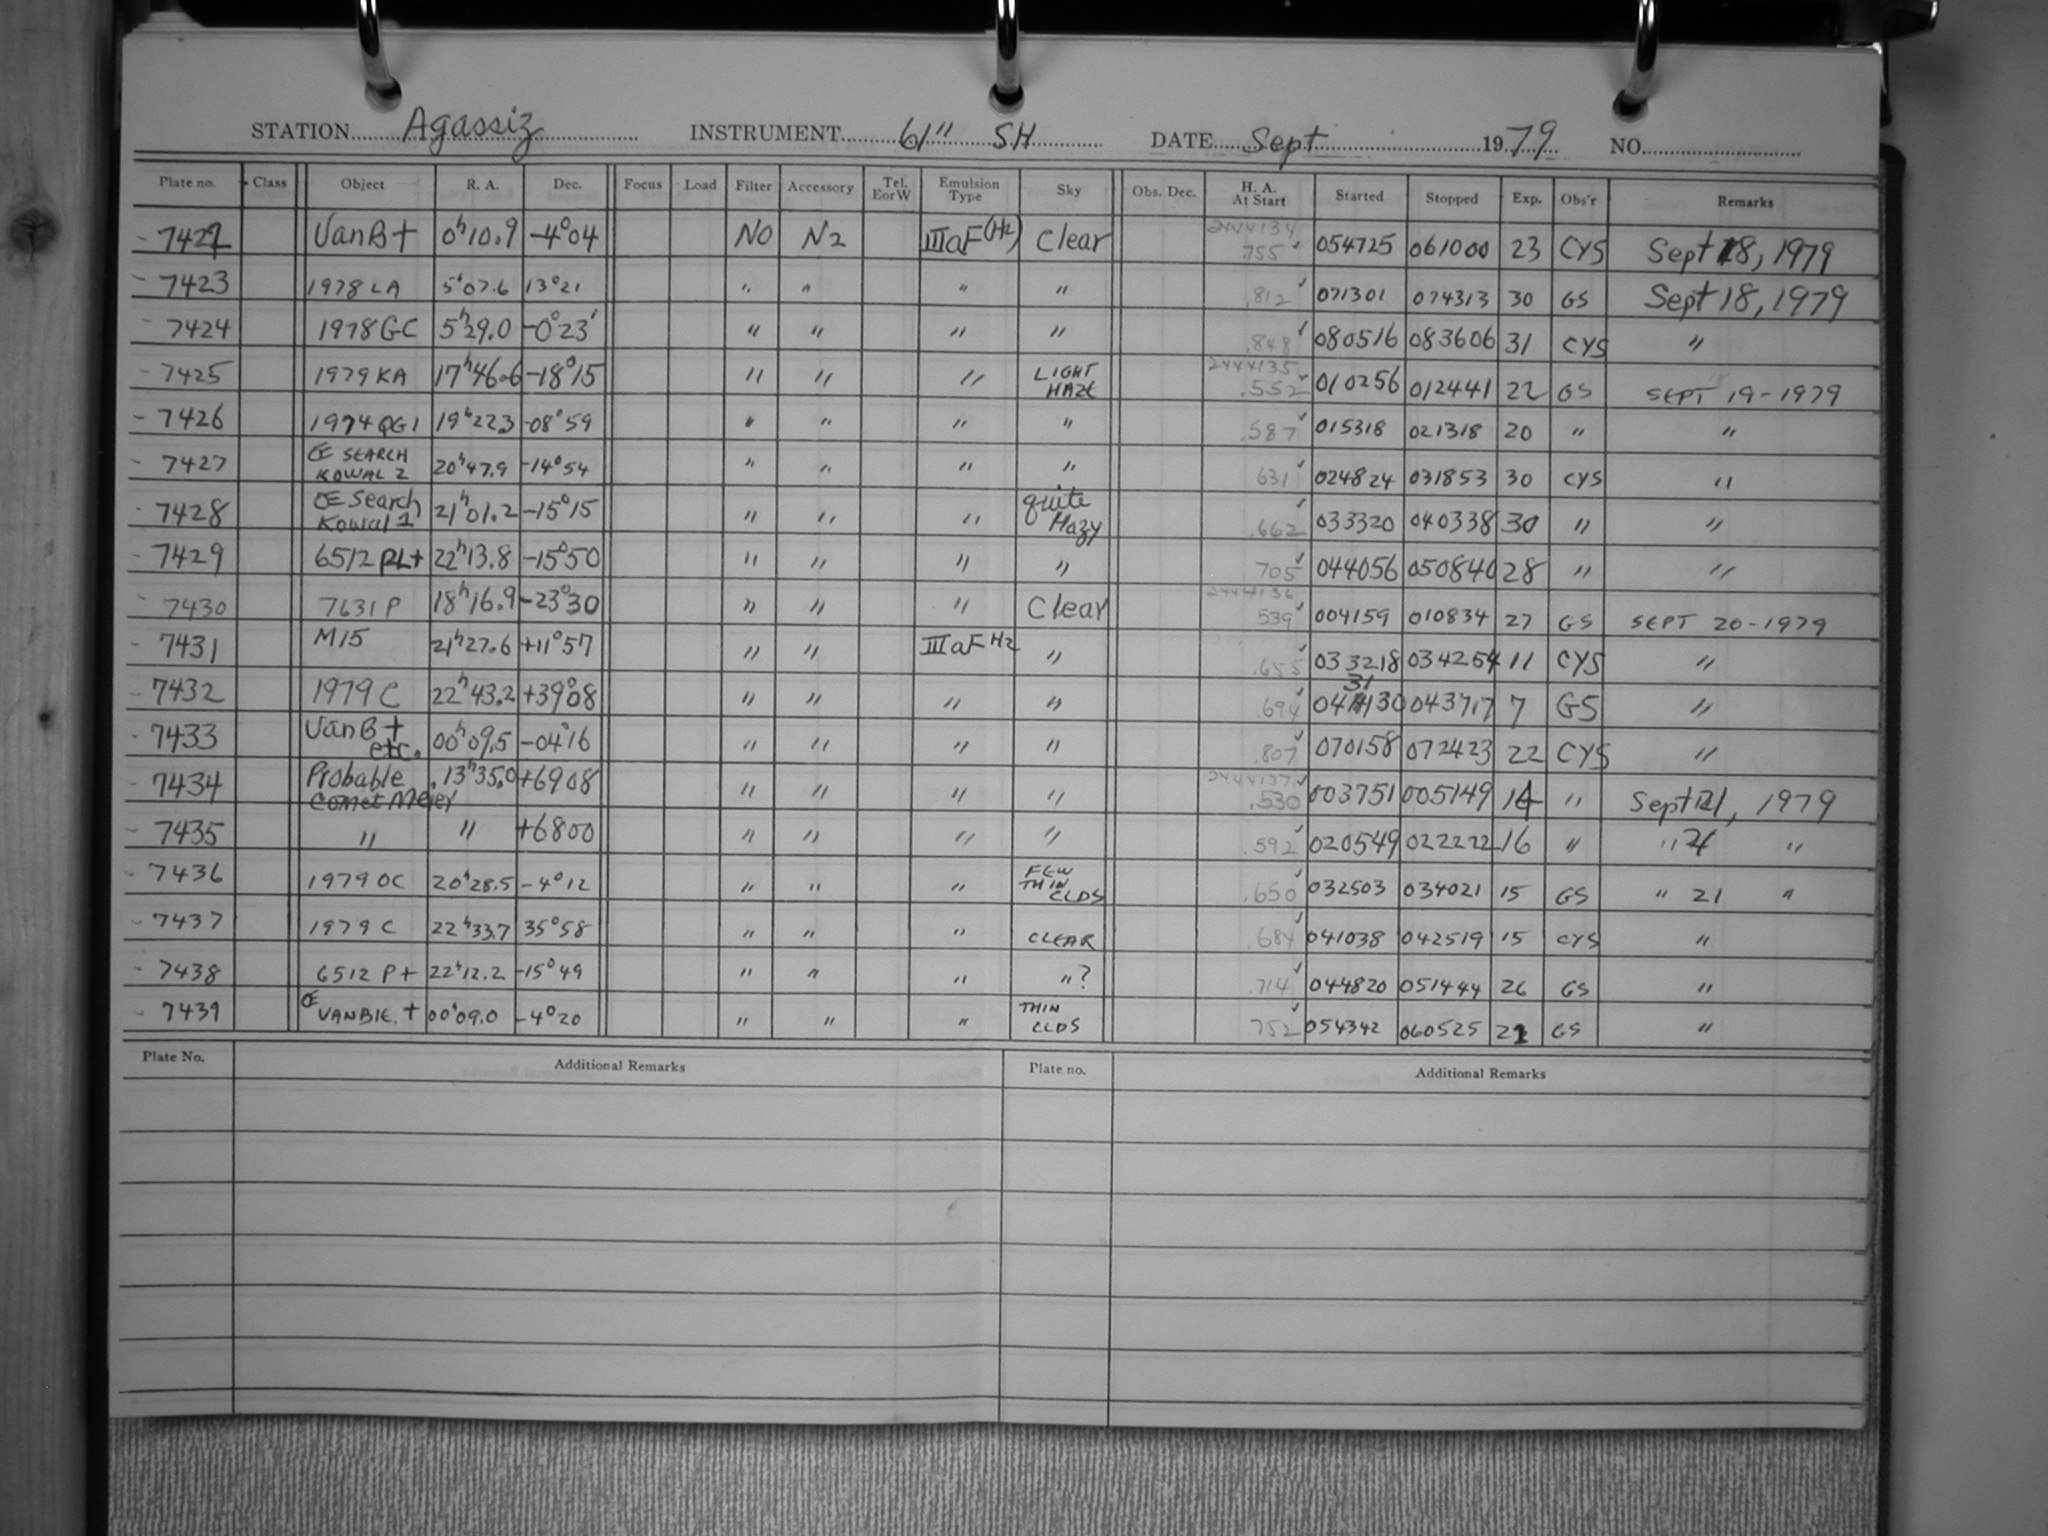 STATION Agassiz INSTRUMENT 61" SH DATE Sept 1979 NO.
Plate no. Class Object R. A. Dec. Focus Load Filter Accessory Tel. E or W Emulsion Type Sky Obs. Dec. H. A. At Start Started Stopped Exp. Obs'r Remarks
7422 VanB+ 0ʰ10.9 -4°04 NO N2 IIIaF(H2) Clear 2444134 .755 ✓ 054725 061000 23 CYS Sept 18, 1979
7423 1978 LA 5ʰ07.6 13°21 " " " " .812 ✓ 071301 074313 30 GS Sept 18, 1979
7424 1978 GC 5ʰ29.0 -0°23' " " " " .848 ✓ 080516 083606 31 CYS "
7425 1979 KA 17ʰ46.6 -18°15 " " " LIGHT HAZE 2444135 .552 ✓ 010256 012441 22 GS SEPT 19-1979
7426 1974 QG1 19ʰ22.3 -08°59 " " " " .587 ✓ 015318 021318 20 " "
7427 Œ SEARCH KOWAL 2 20ʰ47.9 -14°54 " " " " 631 ✓ 024824 031853 30 CYS "
7428 Œ Search Kowal 1 21ʰ01.2 -15°15 " " " quite Hazy .662 ✓ 033320 040338 30 " "
7429 6512 PL+ 22ʰ13.8 -15°50 " " " " 705 ✓ 044056 050840 28 " "
7430 7631 P 18ʰ16.9 -23°30 " " " Clear 2444136 539 ✓ 004159 010834 27 GS SEPT 20-1979
7431 M15 21ʰ27.6 +11°57 " " IIIaF H2 " .655 ✓ 033218 034254 11 CYS "
7432 1979 C 22ʰ43.2 +39°08 " " " " .694 ✓ 043130 043717 7 GS "
7433 VanB+ etc. 00ʰ09.5 -04°16 " " " " .807 ✓ 070158 072423 22 CYS "
7434 Probable Comet Meier 13ʰ35.0 +6908 " " " " 2444137 .530 ✓ 003751 005149 14 " Sept 21, 1979
7435 " " +6800 " " " " .592 ✓ 020549 022222 16 " " 21 "
7436 1979 OC 20ʰ28.5 -4°12 " " " FEW THIN CLDS .650 ✓ 032503 034021 15 GS " 21 "
7437 1979 C 22ʰ33.7 35°58 " " " CLEAR .684 ✓ 041038 042519 15 CYS "
7438 6512 P+ 22ʰ12.2 -15°49 " " " "? .714 ✓ 044820 051444 26 GS "
7439 Œ VANBIE. + 00ʰ09.0 -4°20 " " " THIN CLDS 752 ✓ 054342 060525 21 GS "
Plate No. Additional Remarks Plate no. Additional Remarks